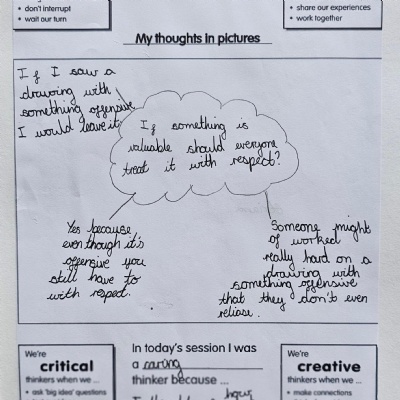 • don't interrupt
• wait our turn
• share our experiences
• work together
My thoughts in pictures
If I saw a
drawing with
something offensive
I would leave it
If something is
valuable should everyone
treat it with respect?
Yes because
even though it's
offensive you
still have to
with respect.
Someone might
of worked
really hard on a
drawing with
something offensive
that they don't even
reliase.
We're
critical
thinkers when we ...
• ask 'big idea' questions
In today's session I was
a caring
thinker because ...
We're
creative
thinkers when we ...
• make connections